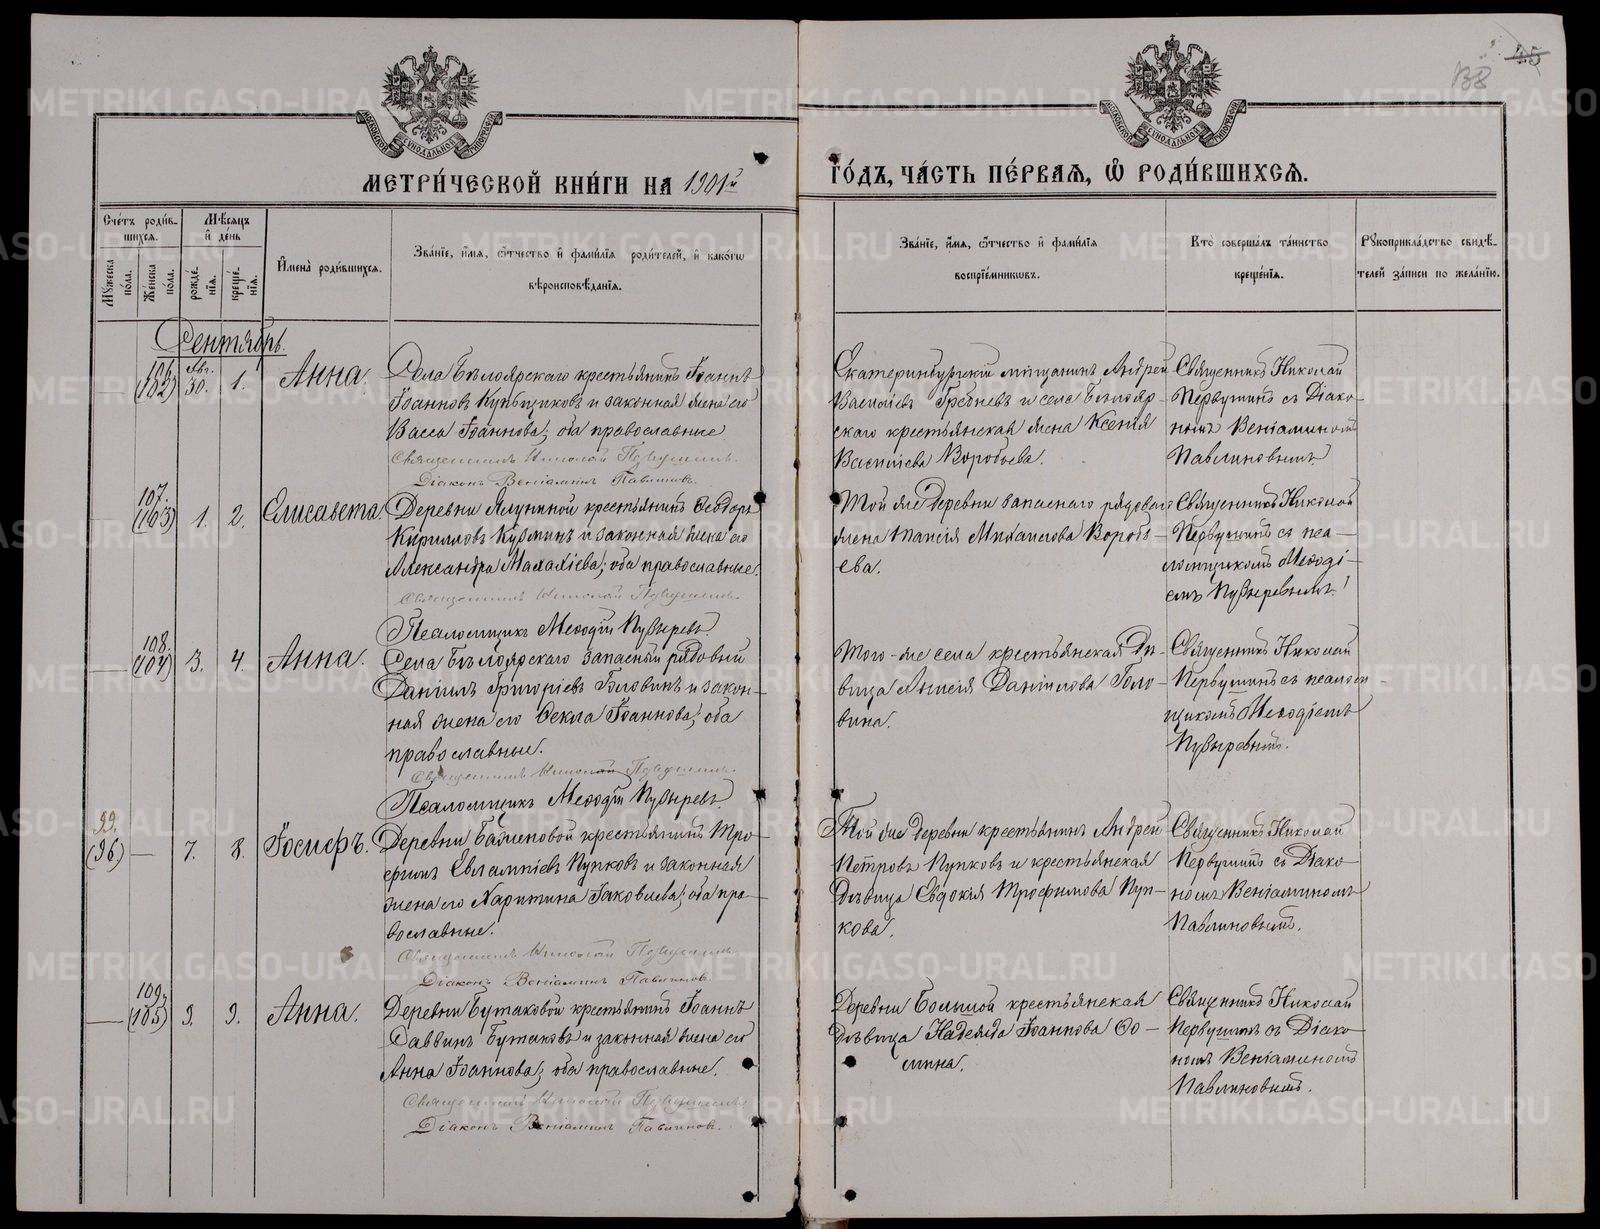 45
138
МЕТРИ́ЧЕСКОЙ КНИ́ГИ НА 1901й
ГО́ДЪ, ЧА́СТЬ ПЕ́РВАЯ, Ѡ РОДИ́ВШИХСЯ.
Сче́тъ роди́в-
шихся.
Мѣ́сяцъ
и де́нь
Му́жеска
по́ла.
Же́нска
по́ла.
рожде́-
нїя.
креще́-
нїя.
И҆мена̀ роди́вшихся.
Зва́нїе, и҆́мя, ѻ҆́тчество и҆ фами́лїя роди́телей, и҆ како́гѡ
вѣроисповѣ́данїя.
Зва́нїе, и҆́мя, ѻ҆́тчество и҆ фами́лїя
воспрїе́мниковъ.
Кто̀ соверша́лъ та́инство
креще́нїя.
Рꙋкоприкла́дство свидѣ́-
телей за́писи по жела́нїю.
Сентябрь.
106.
(102)
Авг.
30.
1.
Анна.
Села Бѣлоярскаго крестьянинъ Іоаннъ
Іоанновъ и законная жена его
Васса Іоаннова; оба православные
Священникъ Николай Первушинъ.
Діаконъ Веніаминъ Павлиновъ.
Екатеринбургскій мѣщанинъ Андрей
Васильевъ Гребневъ и села Бѣлояр-
скаго крестьянская жена Ксенія
Васильева Воробьева.
Священникъ Николай
Первушинъ съ Діако-
номъ Веніаминомъ
Павлиновымъ.
107.
(103)
1.
2.
Елисавета.
Деревни Ялуниной крестьянинъ Ѳеодоръ
Кирилловъ Кузминъ и законная жена его
Александра Малахіева; оба православные.
Священникъ Николай Первушинъ.
Псаломщикъ Меѳодій Пузыревъ.
Той же деревни запаснаго рядоваго
жена Таисія Михаилова Воробь-
ева.
Священникъ Николай
Первушинъ съ пса-
ломщикомъ Меѳоді-
емъ Пузыревымъ.
108.
(104)
3.
4.
Анна.
Села Бѣлоярскаго запасный рядовый
Даніилъ Григоріевъ Головинъ и закон-
ная жена его Ѳекла Іоаннова; оба
православные.
Священникъ Николай Первушинъ.
Псаломщикъ Меѳодій Пузыревъ.
Того-же села крестьянская дѣ-
вица Анисія Даніилова Голо-
вина.
Священникъ Николай
Первушинъ съ псалом-
щикомъ Меѳодіемъ
Пузыревымъ.
99.
(96)
7.
8.
Іосифъ.
Деревни Баженовой крестьянинъ Тро-
фимъ Евлампіевъ Пупковъ и законная
жена его Харитина Іаковлева; оба пра-
вославные.
Священникъ Николай Первушинъ.
Діаконъ Веніаминъ Павлиновъ.
Той же деревни крестьянинъ Андрей
Петровъ Пупковъ и крестьянская
дѣвица Евдокія Трофимова Пуп-
кова.
Священникъ Николай
Первушинъ съ Діако-
номъ Веніаминомъ
Павлиновымъ.
109.
(105)
9.
9.
Анна.
Деревни Бутаковой крестьянинъ Іоаннъ
Саввинъ Бутаковъ и законная жена его
Анна Іоаннова; оба православные.
Священникъ Николай Первушинъ.
Діаконъ Веніаминъ Павлиновъ.
Деревни Большой крестьянская
дѣвица Надежда Іоаннова Ѳо-
мина.
Священникъ Николай
Первушинъ съ Діако-
номъ Веніаминомъ
Павлиновымъ.
METRIKI.GASO-URAL.RU